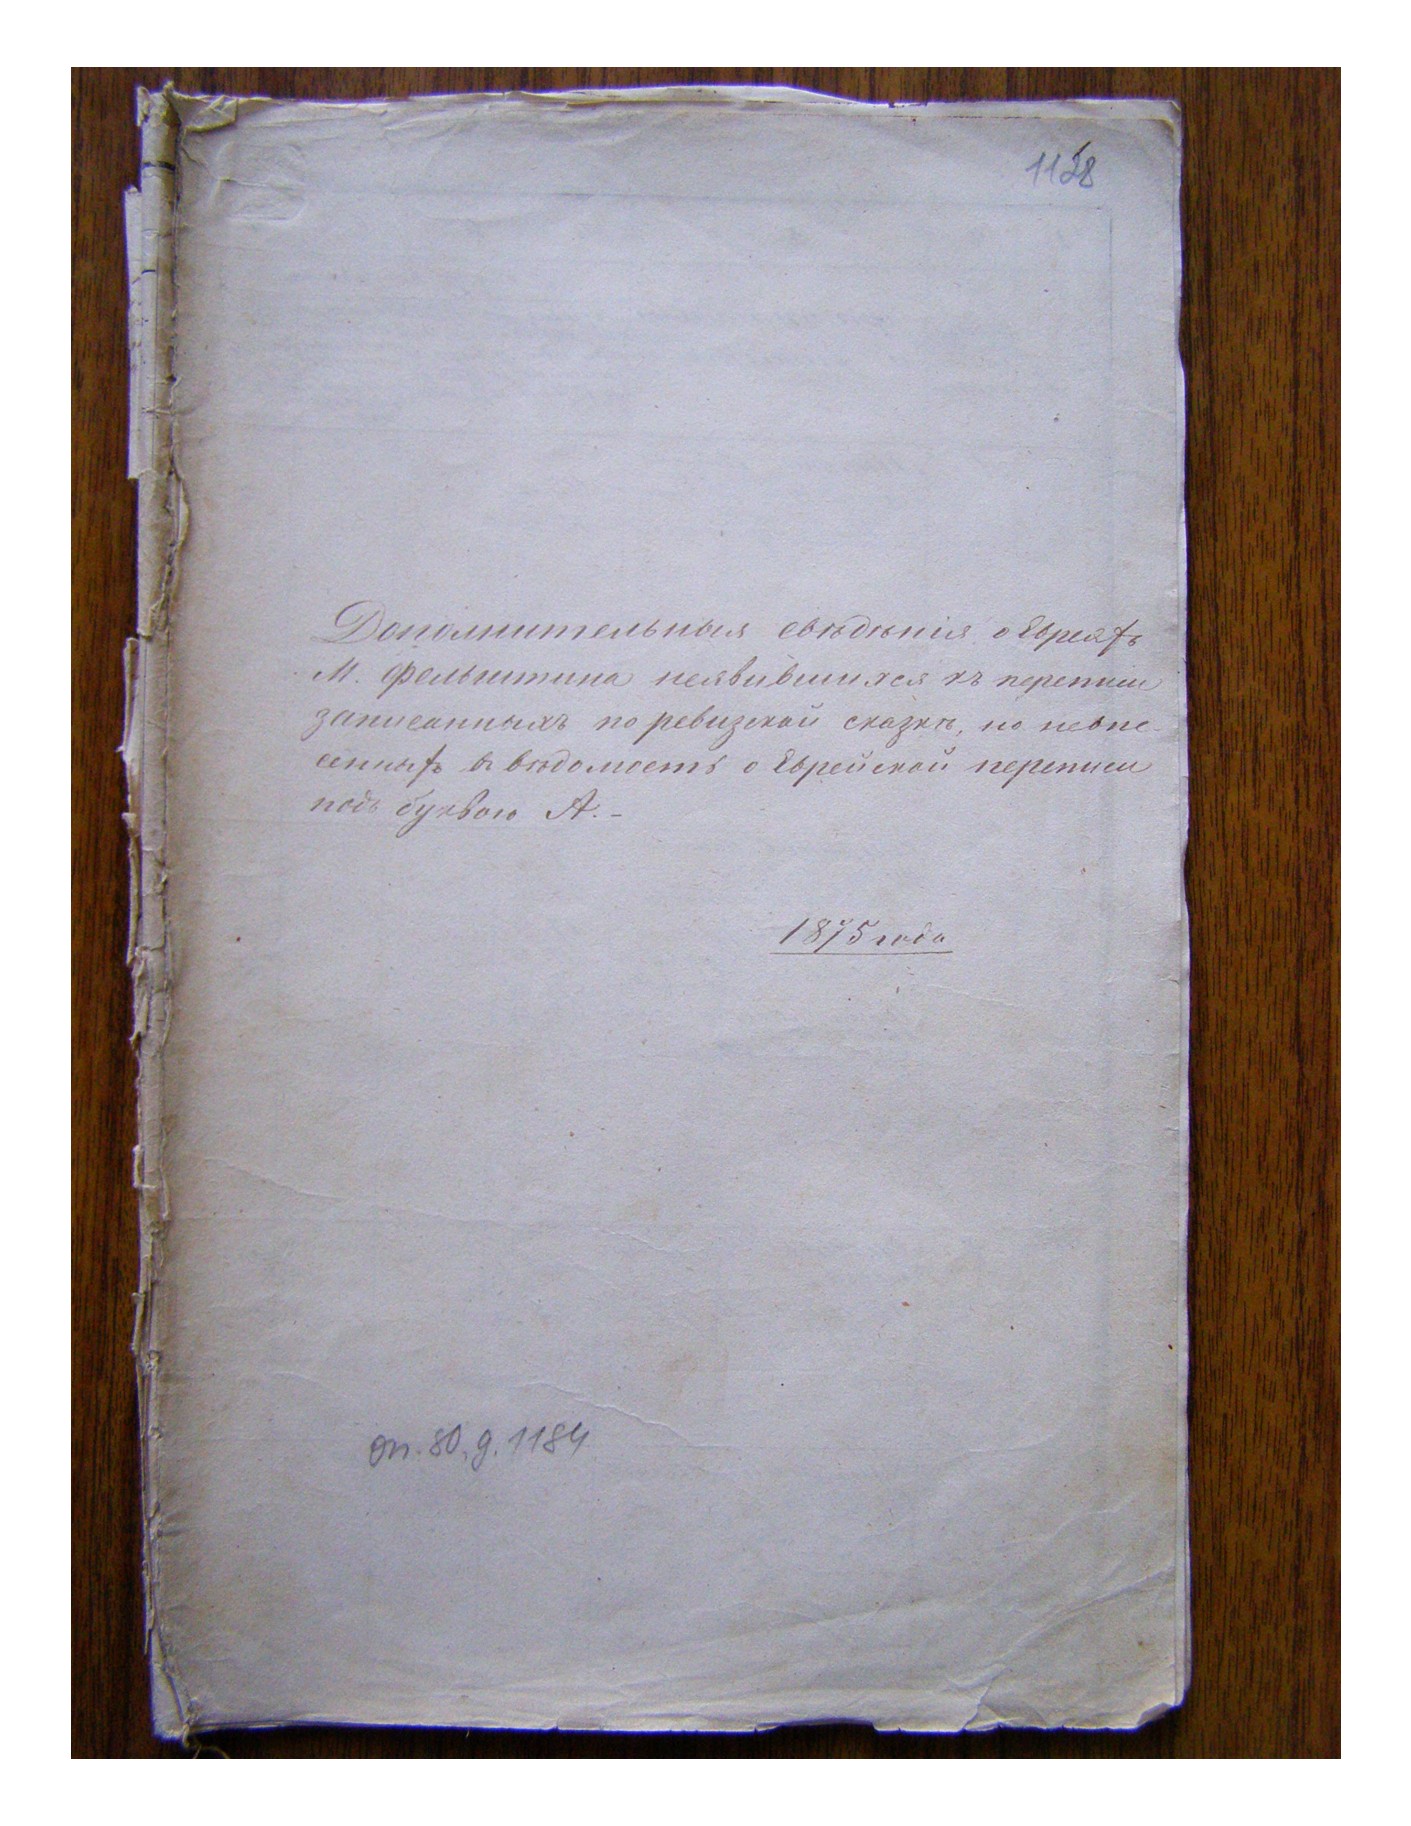 1128
Дополнительныя свѣдѣнія о Евреяхъ
М. Фельштина неявившихся къ переписи
записанныхъ по ревизской сказкѣ, но невне-
сенныхъ въ вѣдомость о Еврейской переписи
подъ буквою А. –
1875 года
оп. 80, д. 1184